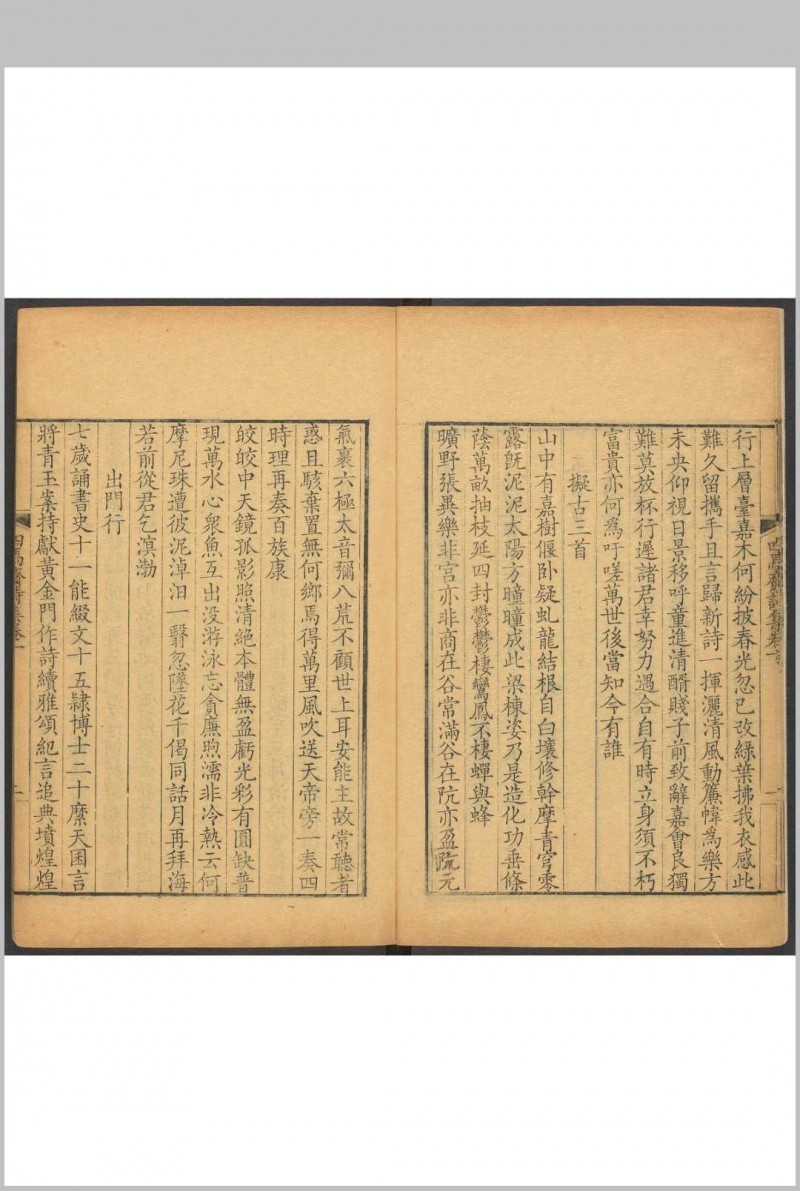 行上層臺嘉木何紛披春光忽已改綠葉拂我衣感此
難久留攜手且言歸新詩一揮灑清風動簾幃為樂方
未央仰視日景移呼童進清醑賤子前致辭嘉會良獨
難莫放杯行遲諸君幸努力遇合自有時立身須不朽
富貴亦何為吁嗟萬世後當知今有誰
擬古三首
山中有嘉樹偃卧疑虬龍結根自白壤修幹摩青穹零
露旣泥泥太陽方曈曈成此梁棟姿乃是造化功垂條
蔭萬畝抽枝延四封鬱鬱棲鸞鳳不棲蟬與蜂
曠野張異樂非宫亦非商在谷常滿谷在阬亦盈阬元
氣裹六極太音彌八荒不顧世上耳安能主故常聽者
惑且駭棄置無何鄉焉得萬里風吹送天帝旁一奏四
時理再奏百族康
皎皎中天鏡孤影照清絕本體無盈虧光彩有圓缺普
現萬水心衆魚互出没游泳忘貪廉煦濡非冷熱云何
摩尼珠遭彼泥淖汨一翳忽墜花千偈同話月再拜海
若前從君乞溟渤
出門行
七歲誦書史十一能綴文十五隸博士二十縻天囷言
將青玉案持獻黃金門作詩續雅頌紀言追典墳煌煌
四馬齋詩集卷一
二